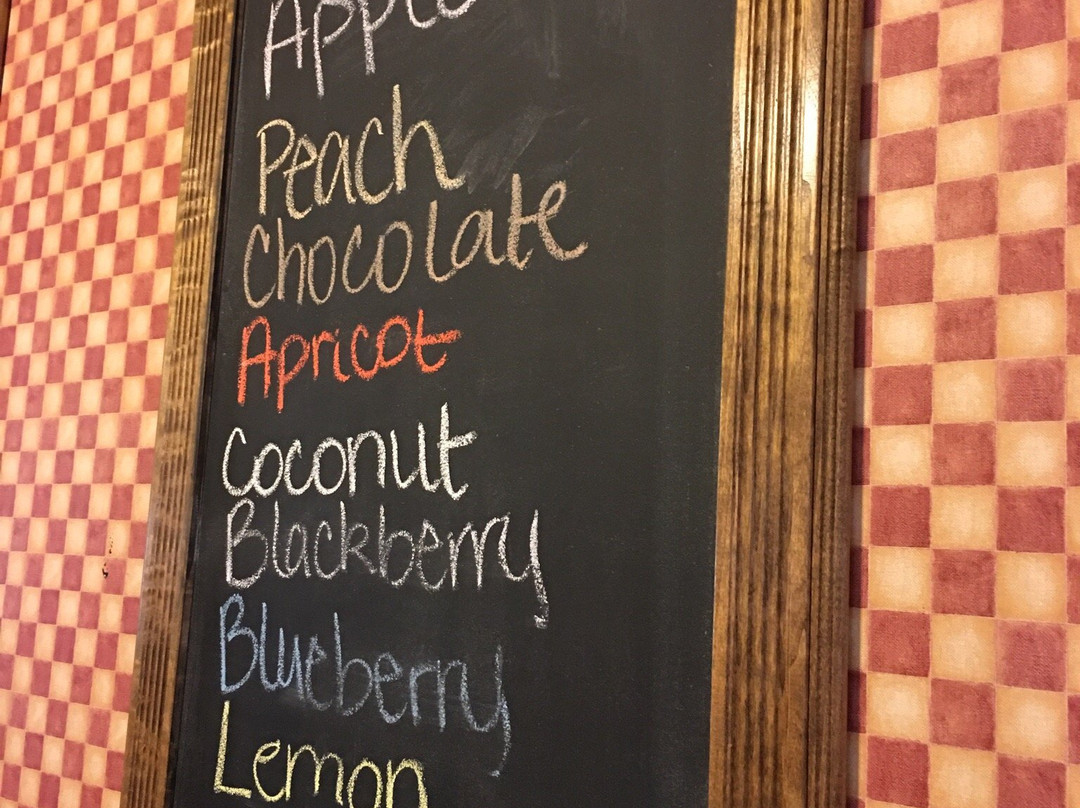 Apple
Peach
Chocolate
Apricot
Coconut
Blackberry
Blueberry
Lemon